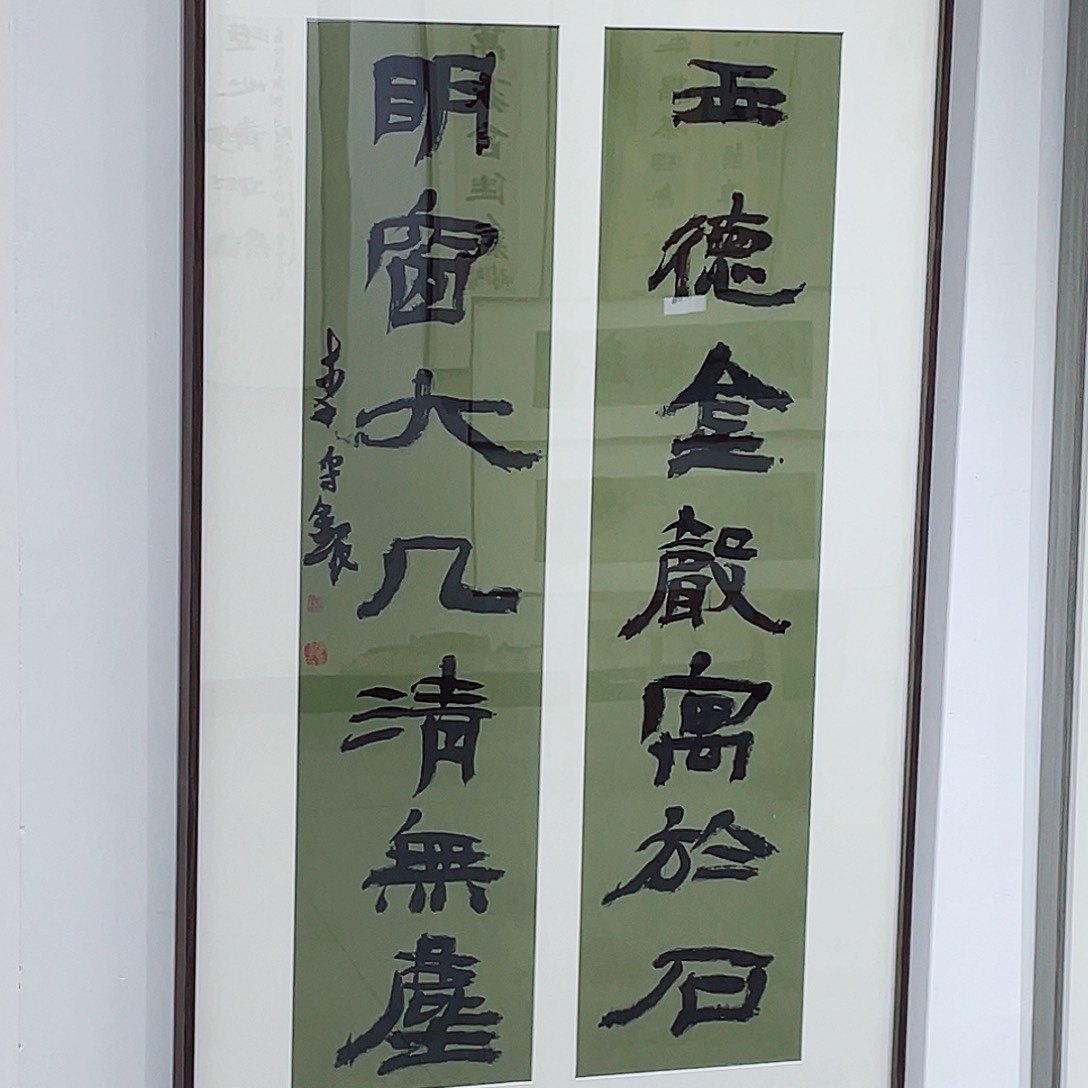 玉德金聲寓於石
明窗大几清無塵
李守銀